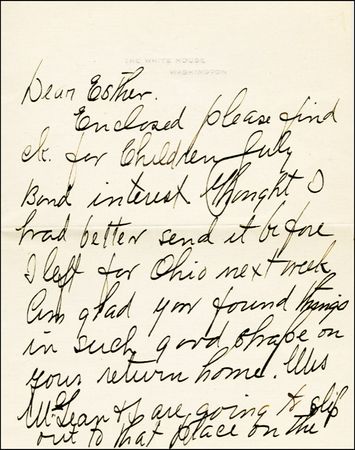 THE WHITE HOUSE
WASHINGTON
Dear Esther.
Enclosed please find
ck. for Children July
Bond interest Thought I
had better send it before
I left for Ohio next week
Am glad you found things
in such good shape on
your return home. Mrs
McLean & I are going to slip
out to that place on the